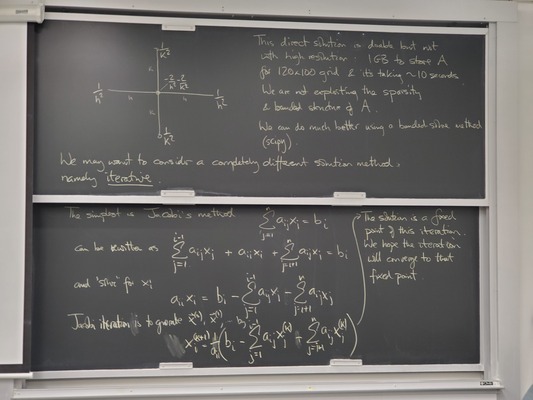 1/k²
k
-2/h² -2/k²
1/h²
h
h
1/h²
k
1/k²
This direct solution is doable but not
with high resolution: 1GB to store A
for 120x100 grid & its taking ~10 seconds
We are not exploiting the sparsity
& banded structure of A.
We can do much better using a banded solve method
(scipy).
We may want to consider a completely different solution method,
namely iterative.
The simplest is Jacobi's method
\sum_{j=1}^{n} a_{ij} x_j = b_i
can be rewritten as \sum_{j=1}^{i-1} a_{ij} x_j + a_{ii} x_i + \sum_{j=i+1}^{n} a_{ij} x_j = b_i
and "solve" for x_i
a_{ii} x_i = b_i - \sum_{j=1}^{i-1} a_{ij} x_j - \sum_{j=i+1}^{n} a_{ij} x_j
Jacobi iteration is to generate x^{(0)}, x^{(1)}, ... by
x_i^{(k+1)} = \frac{1}{a_{ii}} ( b_i - \sum_{j=1}^{i-1} a_{ij} x_j^{(k)} - \sum_{j=i+1}^{n} a_{ij} x_j^{(k)} )
The solution is a fixed
point of this iteration.
We hope the iteration
will converge to that
fixed point.